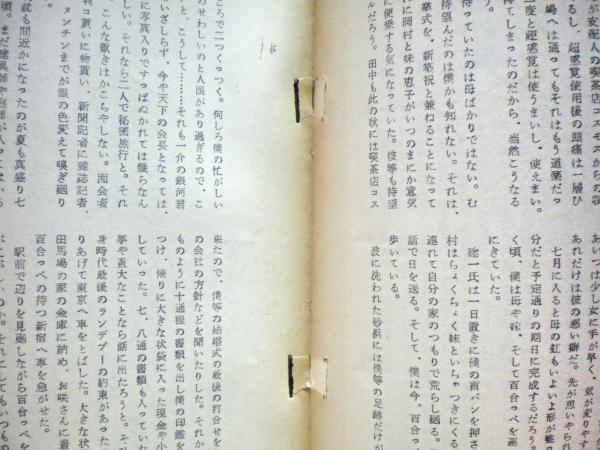 が支配人の喫茶店コスモスからの収
るし、超感覚使用後の頭痛は一層ひ
場へは通ってもそれはもう道楽だっ
度と超感覚は使うまいし、使えまい。
待てしまったのだから、当然こうなる
待っていたのは母ばかりではない。む
待望んだのは僕かも知れない。それは、
挙式を、新築祝と兼ねることになって
に岡村と妹の恵子がいつのまにか意気
に便乗する気になっていた。彼等も待望
ルだろう。田中も此の秋には喫茶店コス
あいつは少し女に手が早く、気が変りやす
あれだけは彼の悪い癖だ。先が思いやられ
七月に入ると母の虹もいよいよ形が整っ
分だと予定通りの期日に完成するだろう。
く頃、僕は母や妹、そして百合っぺを連
にきていた。
建一氏は一日置きに僕の盲パンを押さ
村はちょくちょく妹といちゃつきにくる
連れて自分の家のつもりで荒らし廻る。
話で日を送る。そして、僕は今、百合っ
歩いている。
波に洗われた砂浜には僕等の足跡だけが
ころで二つくっつく。何しろ僕の忙がしい
のせわしいのと人眼があり過ぎるので、こ
と、こうして………それも一介の銀河君
いざしらず、今や天下の会長となっては、
に写真入りですっぱぬかれては幾らなん
しい。それなら二人で秘密旅行と、それ
こんな歎きはかこちやしない。面会者
判コ貰いに物貰い、新聞記者に雑誌記者、
ンチンまでが眼の色変えて嗅ぎ廻り
就も間近かになったのが夏も真盛り七
来たので、僕等の結婚式の最後の打合せを
の会社の方針などを聞いたりした。それか
ものように十通程の書類を出し僕の印鑑を
つけ、帰りに大きな状袋に入った現金や小
していった。七、八通の書類も入っていた
事や重大なことなら話に出たろうと。それ
身時代最後のランデブーの約束があった
りあげて東京へ車をとばした。大きな状
田馬場の家の金庫に納め、お咲さんに着
百合っぺの待つ新宿へ車を急がせた。
駅前で辺りを見廻しながら百合っぺを